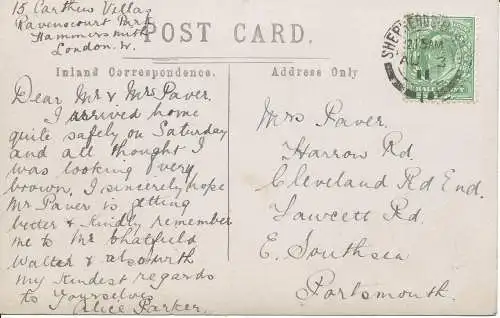 15 Carthew Villas
Ravenscourt Park
Hammersmith
London. W.
POST CARD.
Inland Correspondence.
Address Only
Dear Mr & Mrs Paver.
I arrived home
quite safely on Saturday
and all thought I
was looking very
brown. I sincerely hope
Mr Paver is getting
better & kindly remember
me to Mr Chatfield
Walter & also with
my kindest regards
to yourselves
Alice Parker.
Mrs Paver.
Harrow Rd.
Cleveland Rd End.
Fawcett Rd.
E. Southsea
Portsmouth.
SHEPHERDS B
12.15AM
AU 2
11
HALFPENNY